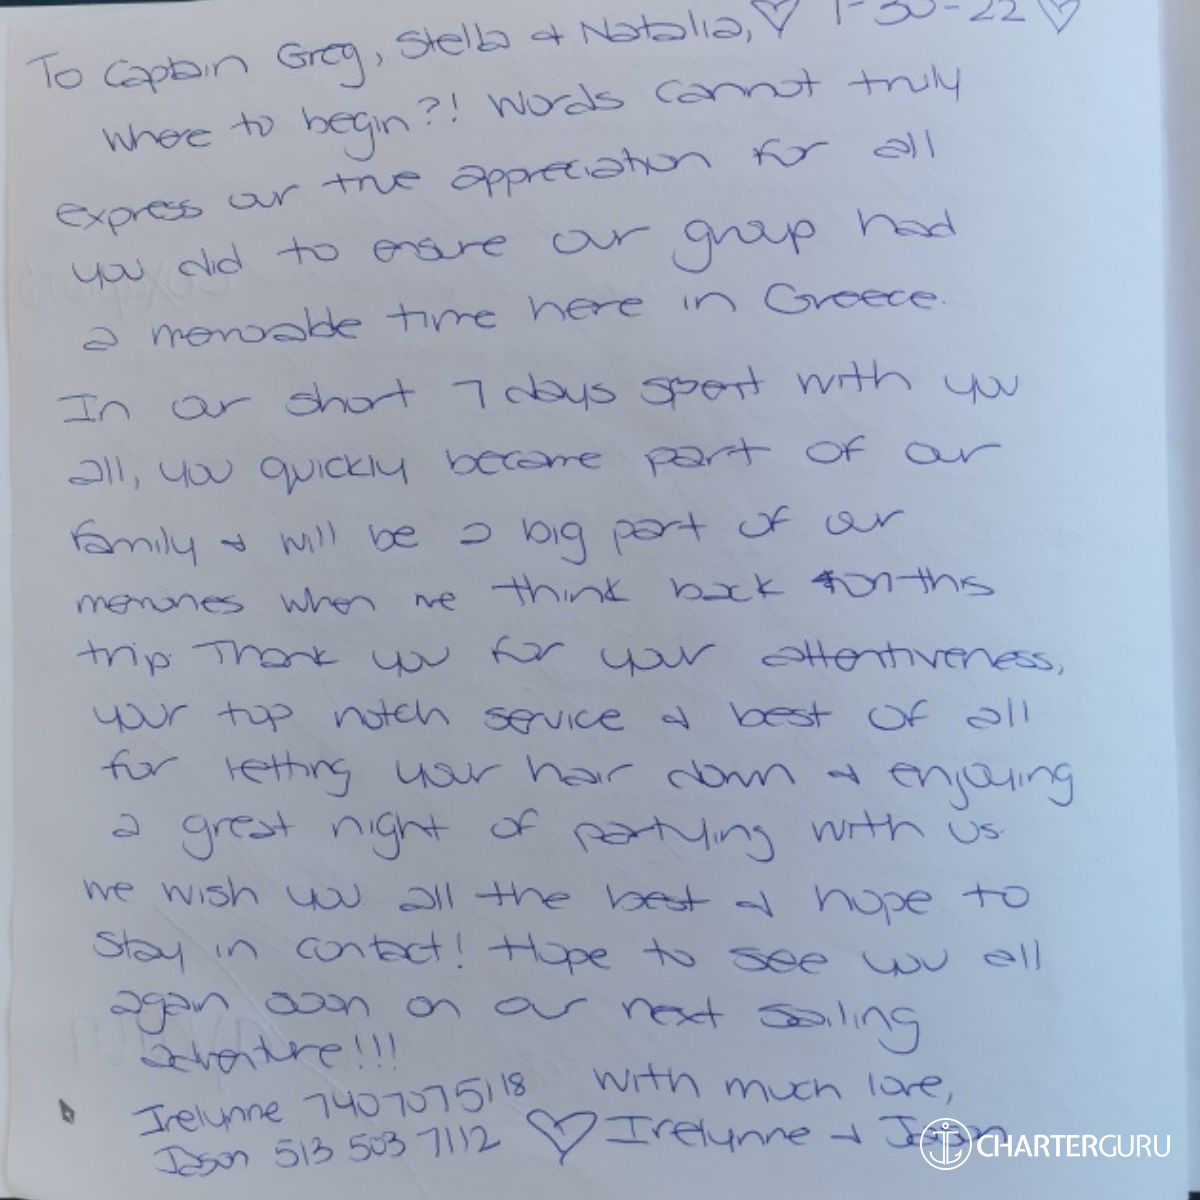 To Captain Greg, Stella & Natalia, ♡ 1-30-22 ♡
Where to begin?! Words cannot truly
express our true appreciation for all
you did to ensure our group had
a memorable time here in Greece.
In our short 7 days spent with you
all, you quickly became part of our
family & will be a big part of our
memories when we think back on this
trip. Thank you for your attentiveness,
your top notch service & best of all
for letting your hair down & enjoying
a great night of partying with us.
We wish you all the best & hope to
stay in contact! Hope to see you all
again soon on our next sailing
adventure!!!
With much love,
Irelynne 7407075118
Jason 513 503 7112 ♡ Irelynne & Jason
CHARTERGURU